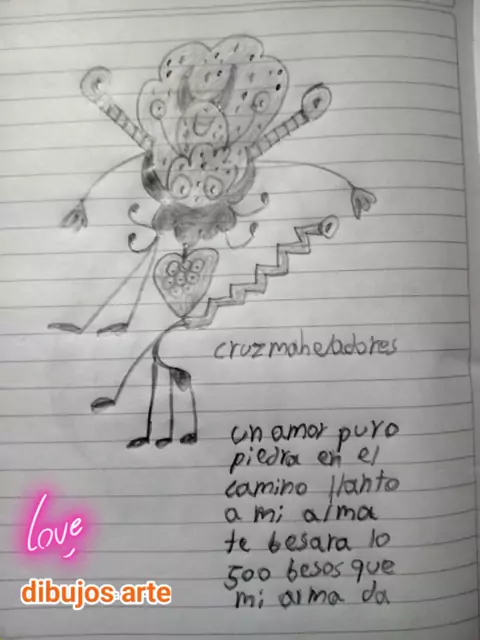 cruzmaheladores
un amor puro
piedra en el
camino llanto
a mi alma
te besara lo
500 besos que
mi alma da
love
dibujos arte